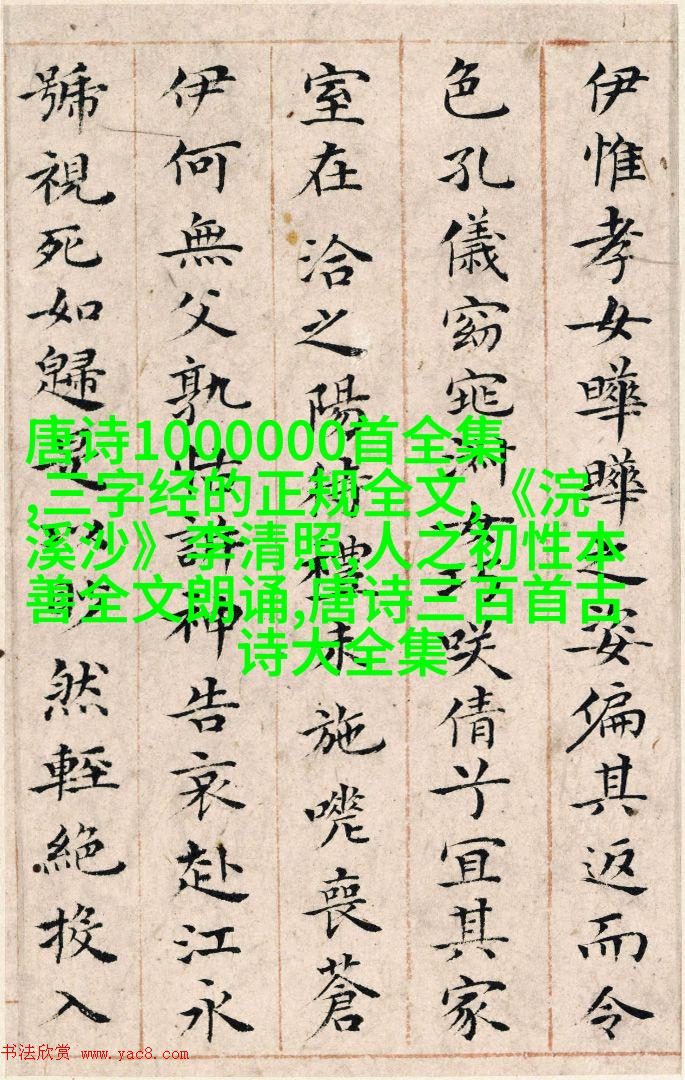 伊惟孝女曄曄之姿偏其返而令
色孔儀窈窕淑女巧咲倩兮宜其家
室在洽之陽待禮未施嗟喪蒼
伊何無父孰怙訴神告哀赴江永
號視死如歸是以眇然輕絕投入
唐诗1000000首全集
,三字经的正规全文,《浣
溪沙》李清照,人之初性本
善全文朗诵,唐诗三百首古
诗大全集
书法欣赏 www.yac8.com